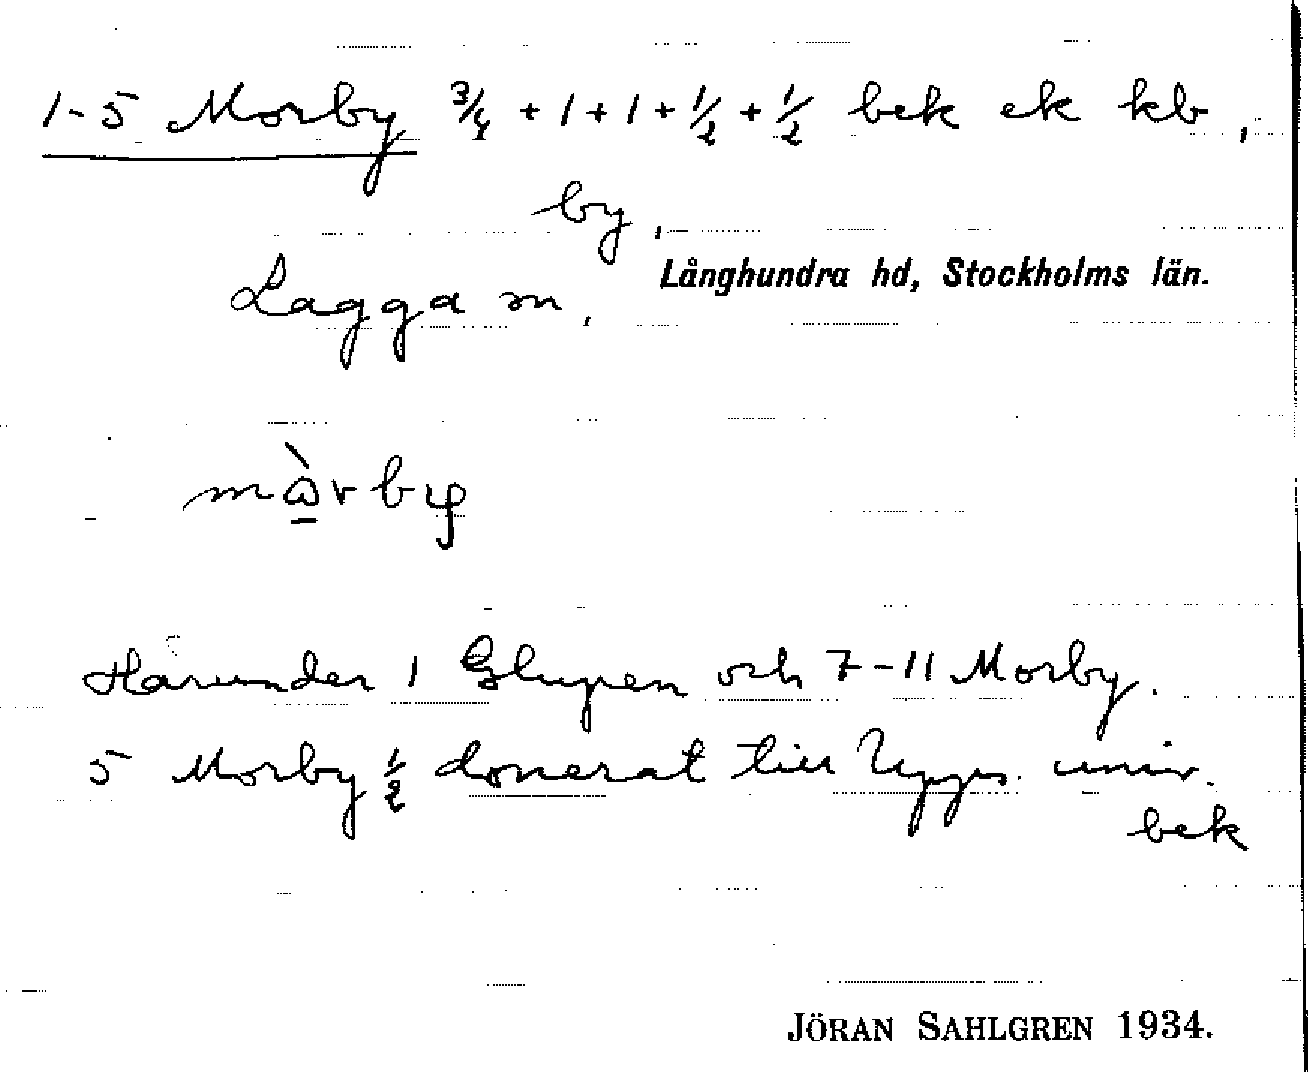 1-5 Morby 3/4 + 1 + 1 + 1/2 + 1/2 bek ek kb,
by,
Långhundra hd, Stockholms län.
Lagga sn,
mɷ̀rby
Härunder 1 Glupen och 7-11 Morby.
5 Morby 1/2 donerat till Upps. univ.
bek
JÖRAN SAHLGREN 1934.